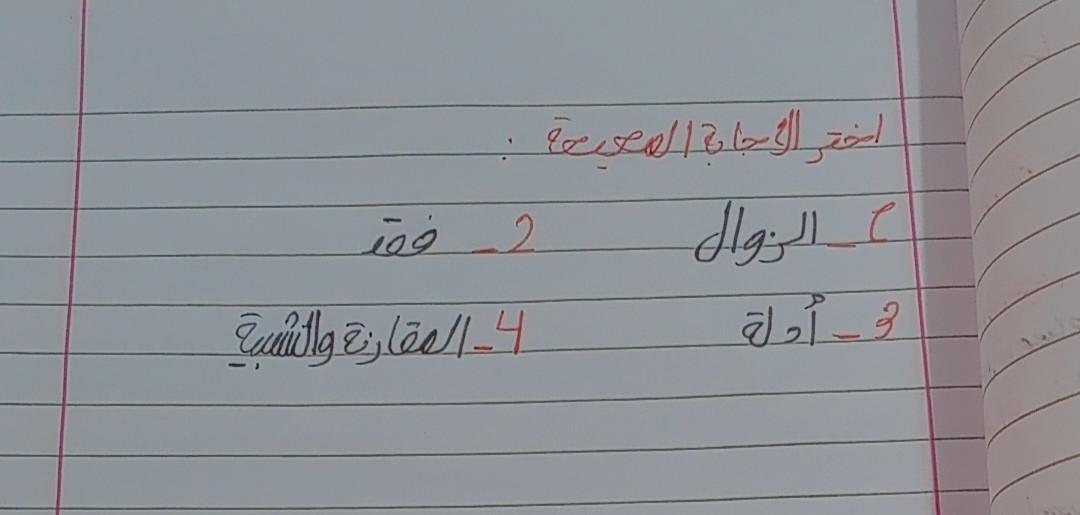 اختر الإجابة الصحيحة :
1 - الزوال 2 - فقد
3 - أدلة 4 - المقارنة والتشبيه